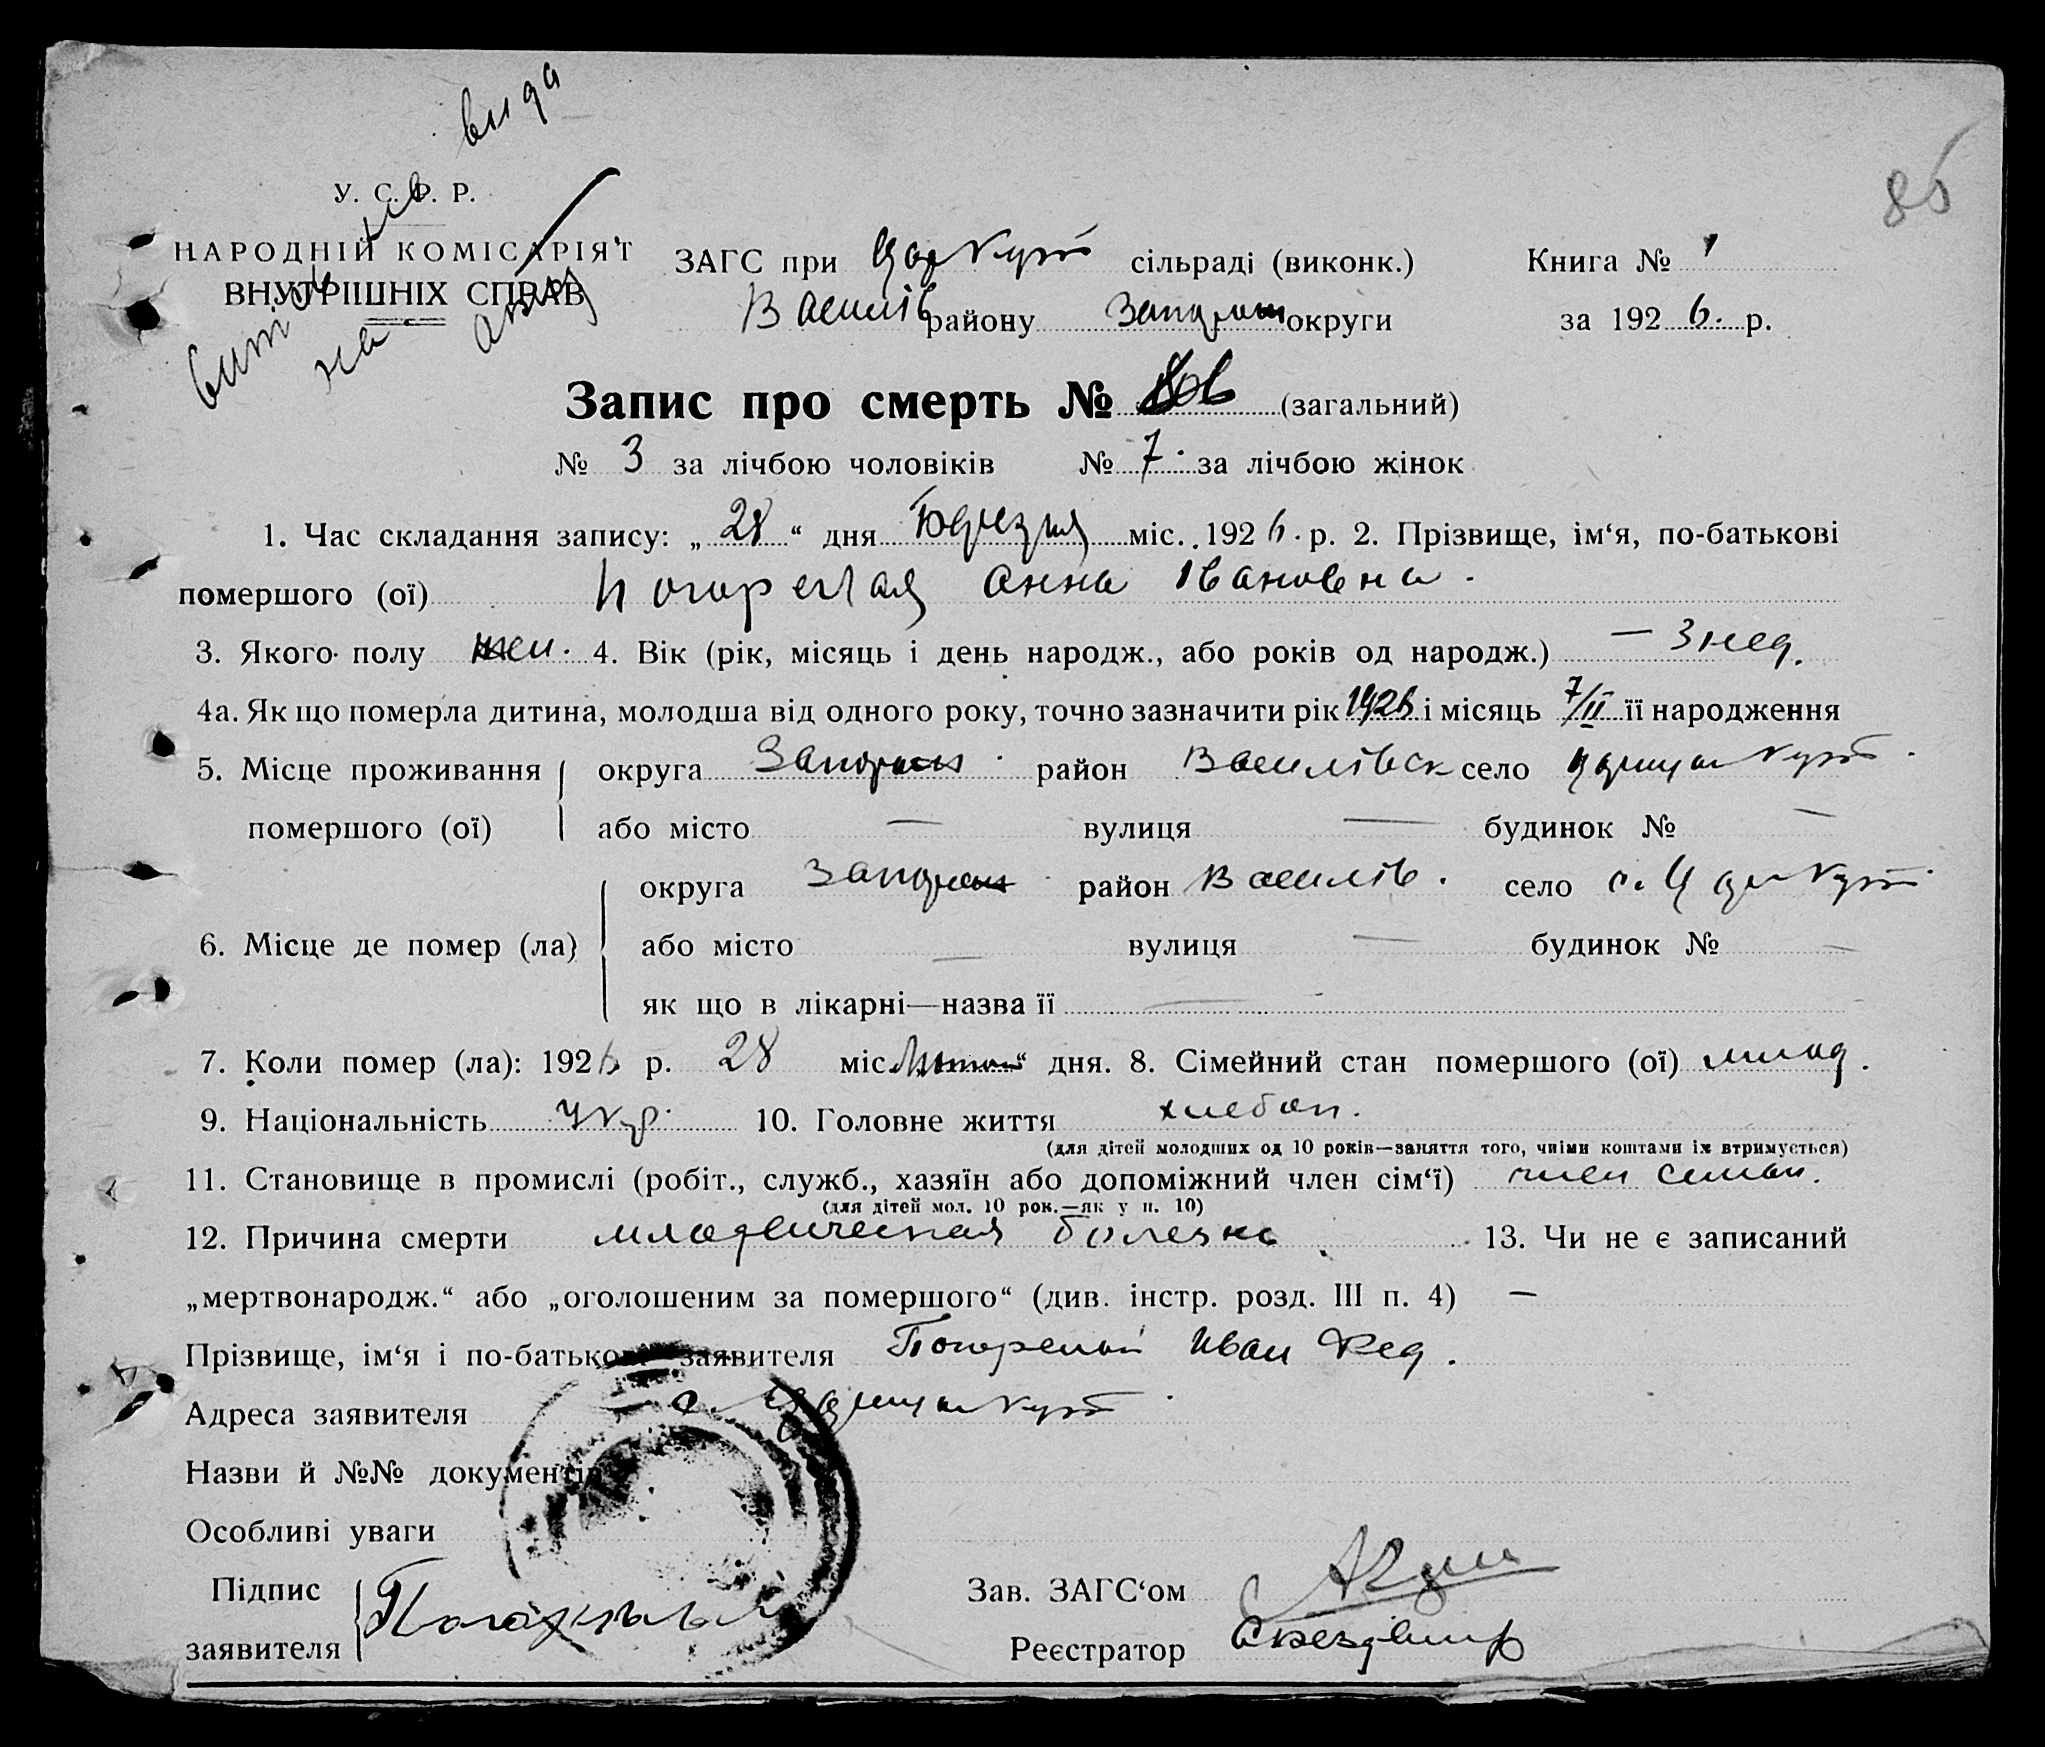 85
У. С. Р. Р.
НАРОДНІЙ КОМІСАРІЯТ
ВНУТРІШНІХ СПРАВ
ЗАГС при Цар Кут сільраді (виконк.) Книга № 1
Василів району Запорож округи за 192 6. р.
Запис про смерть № (загальний)
№ 3 за лічбою чоловіків № 7. за лічбою жінок
1. Час складання запису: „ 28 “ дня міс. 192 6. р. 2. Прізвище, ім‘я, по-батькові
помершого (ої) Погорелая Анна Івановна.
3. Якого полу жен. 4. Вік (рік, місяць і день народж., або років од народж.) — 3 нед.
4а. Як що померла дитина, молодша від одного року, точно зазначити рік 1926 і місяць 7/II її народження
5. Місце проживання округа Запорож. район Василівск село Царицын Кут.
помершого (ої) або місто — вулиця — будинок № —
округа Запорож район Василів. село с. Цар Кут.
6. Місце де помер (ла) або місто — вулиця — будинок № —
як що в лікарні—назва її —
7. Коли помер (ла): 192 6 р. 28 міс. дня. 8. Сімейний стан помершого (ої) млад.
9. Національність Укр. 10. Головне життя хлебоп.
(для дітей молодших од 10 років—заняття того, чиїми коштами їх втримується)
11. Становище в промислі (робіт., служб., хазяїн або допоміжний член сім‘ї) член семьи.
(для дітей мол. 10 рок.—як у п. 10)
12. Причина смерти младенческая болезнь. 13. Чи не є записаний
„мертвонародж.“ або „оголошеним за помершого“ (див. інстр. розд. III п. 4) —
Прізвище, ім‘я і по-батькові заявителя Погорелый Иван Фед.
Адреса заявителя с. Царицын Кут.
Назви й №№ документів
Особливі уваги
Підпис Зав. ЗАГС‘ом
заявителя Реєстратор